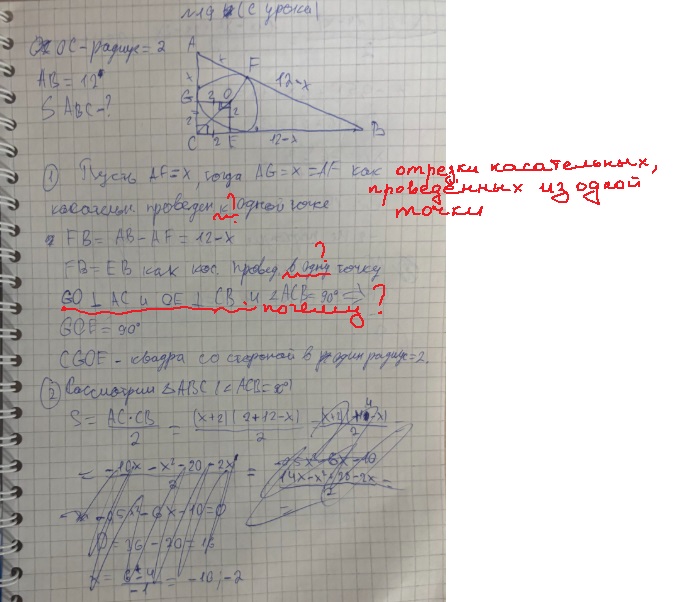 №19 (С урока)
OC - радиус = 2
AB = 12
S ABC - ?
A
x
F
12-x
x
G
2
O
2
2
C
2
E
12-x
B
① Пусть AF = x, тогда AG = x = AF как отрезки касательных,
проведённых из одной
точки
касательн. проведен к? одной точке
FB = AB - AF = 12-x
?
FB = EB как кас. провед. в одну точку
GO ⊥ AC и OE ⊥ CB и ∠ACB = 90° ⇒ почему?
GOE = 90°
CGOE - квадра со стороной в один радиус = 2.
② Рассмотрим △ABC (∠ACB = 90°)
S = AC·CB / 2 = (x+2)(2+12-x) / 2
= -10x - x² - 20 - 2x / 2 =
14x - x² + 28 - 2x =